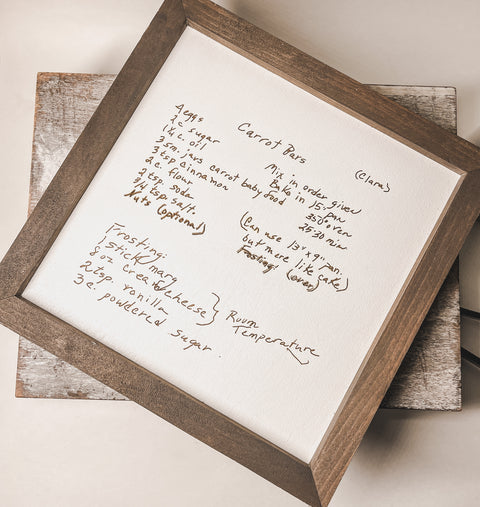 Carrot Bars
(Clara)
4 eggs
2 c. sugar
1 1/4 c. oil
3 sm. jars carrot baby food
3 tsp cinnamon
2 c. flour
2 tsp. soda
3/4 tsp salt.
Nuts (optional)
Mix in order given
Bake in 15" pan
350° oven
25-30 min
(Can use 13" x 9" pan.
but more like cake)
Frosting: (over)
Frosting:
1 stick marg
8 oz cream cheese
2 tsp. vanilla
3 c. powdered sugar
Room
Temperature